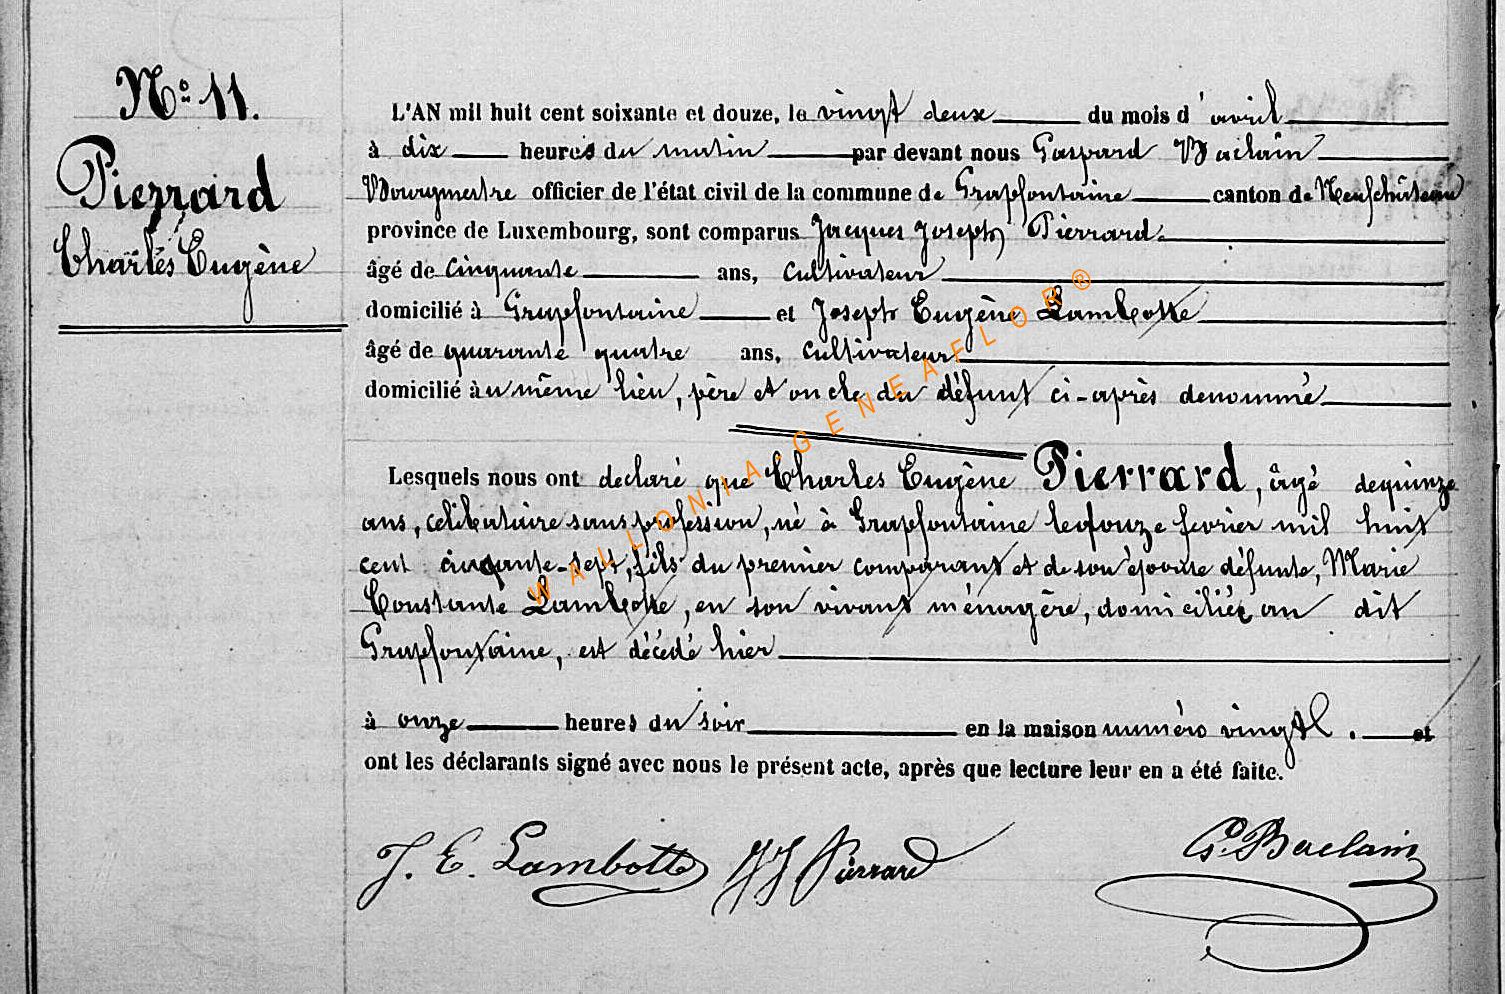 N° 11.
Pierrard
Charles Eugène
L'AN mil huit cent soixante et douze, le vingt deux du mois d'avril
à dix heures du matin par devant nous Gaspard Baclain
Bourgmestre officier de l'état civil de la commune de Grapfontaine canton de Neufchâteau
province de Luxembourg, sont comparus Jacques Joseph Pierrard
âgé de cinquante ans, cultivateur
domicilié à Grapfontaine et Joseph Eugène Lambotte
âgé de quarante quatre ans, cultivateur
domicilié au même lieu, père et oncle du défunt ci-après denommé
Lesquels nous ont declaré que Charles Eugène Pierrard, âgé de quinze
ans, celibataire sans profession, né à Grapfontaine le douze fevrier mil huit
cent cinquante-sept, fils du premier comparant et de son épouse défunte, Marie
Constante Lambotte, en son vivant ménagère, domiciliée au dit
Grapfontaine, est décédé hier
à onze heures du soir en la maison numéro vingt. et
ont les déclarants signé avec nous le présent acte, après que lecture leur en a été faite.
J. E. Lambotte JJ Pierrard G. Baclain
WALLONIA-GENEAFLOR®